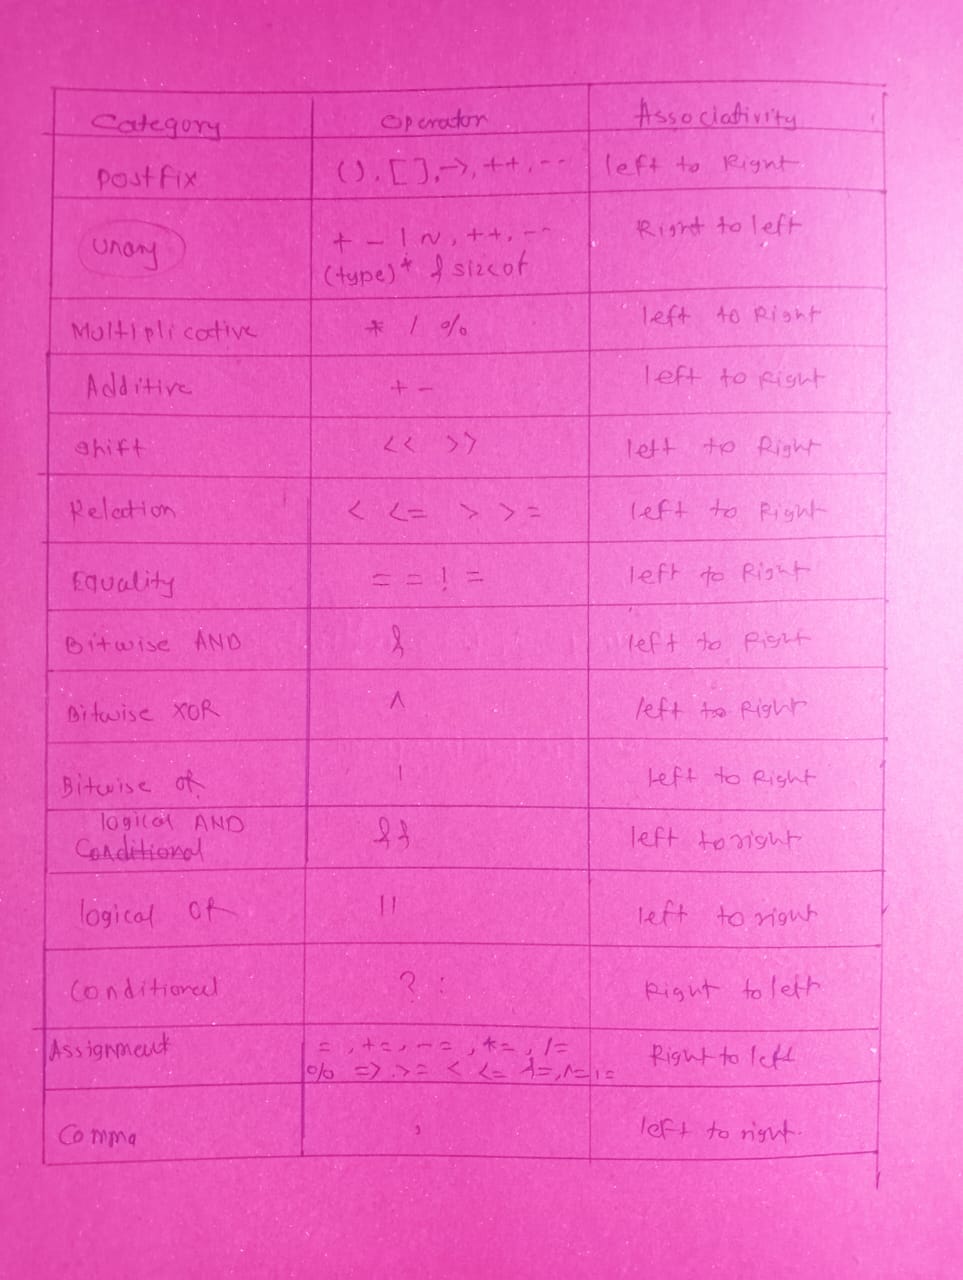 Category Operator Associativity
Postfix (). [ ], ->, ++, -- left to Right
Unary + - ! ~, ++, -- Right to left
(type)* & sizeof
Multiplicative * / % left to Right
Additive + - left to Right
Shift << >> left to Right
Relation < <= > >= left to Right
Equality == != left to Right
Bitwise AND & left to Right
Bitwise XOR ^ left to Right
Bitwise OR | left to Right
logical AND && left to right
Conditional
logical OR || left to right
Conditional ? : Right to left
Assignment =, +=, -=, *=, /= Right to left
% => . >= < <= &=, ^= |=
Comma , left to right.